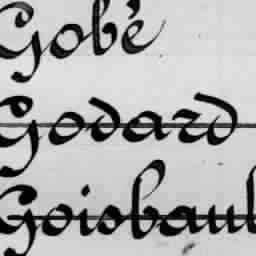 Gobé
Godard
Goisbaul